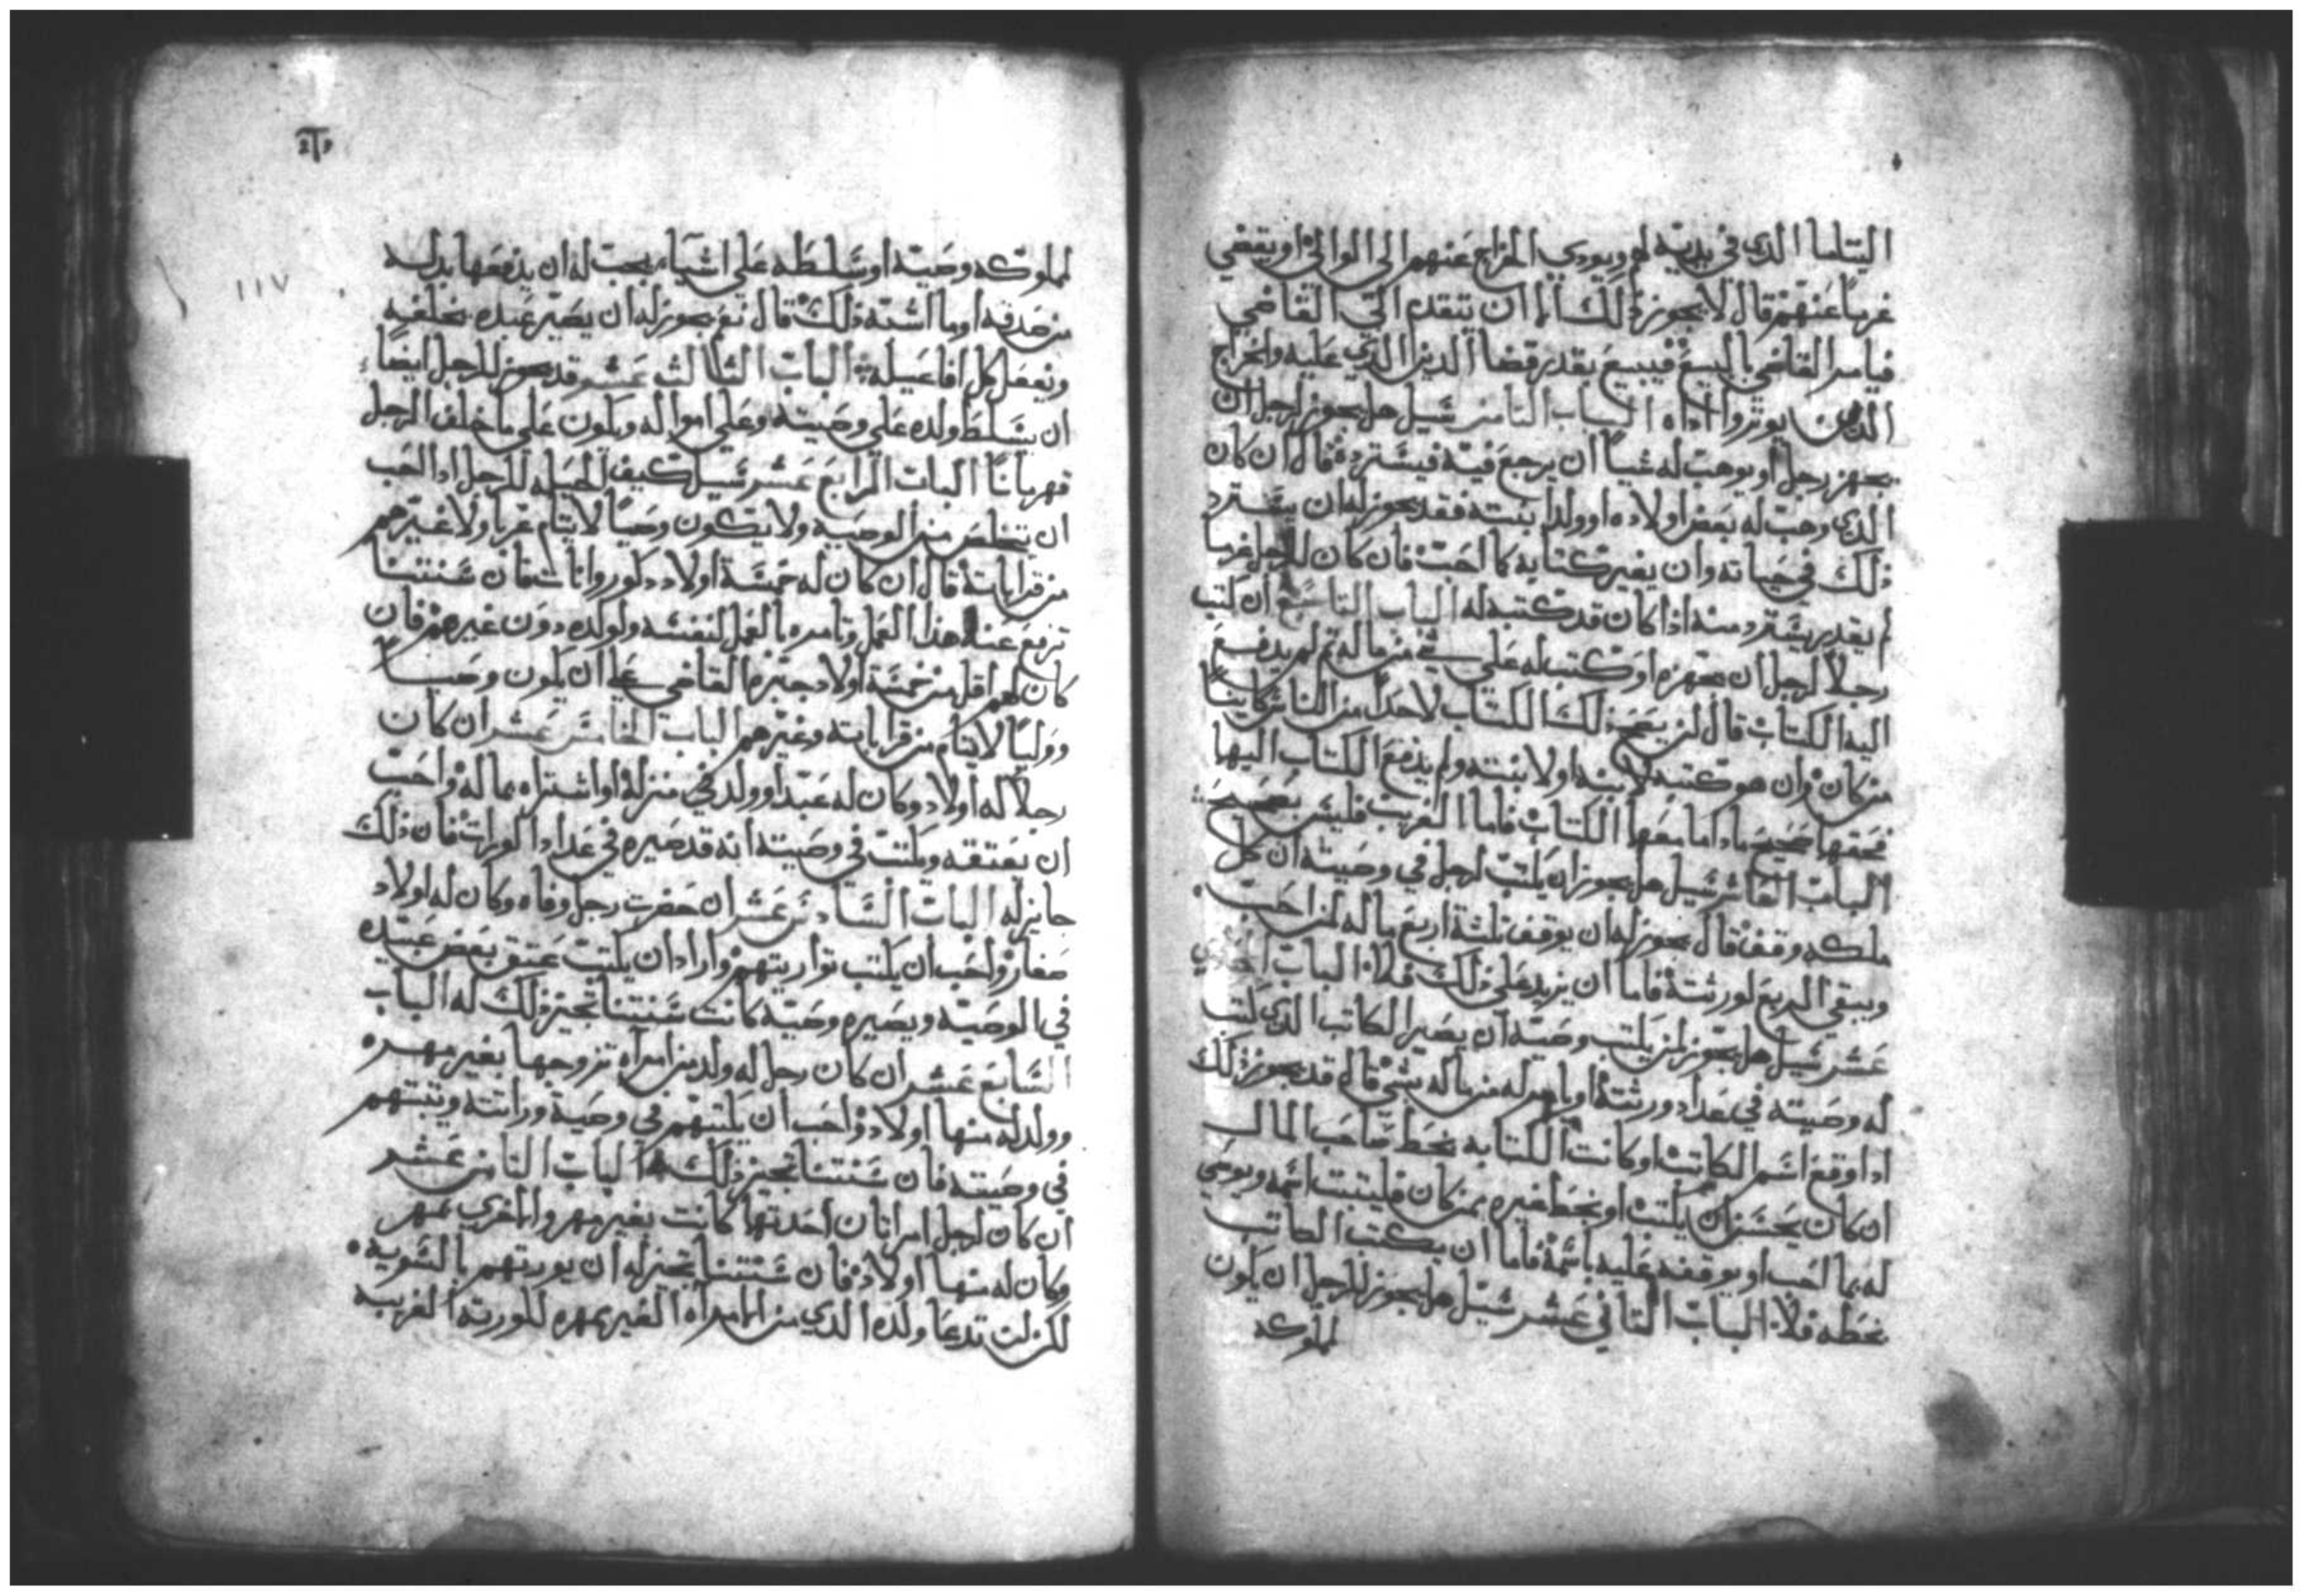 اليتاما الذي في يديه لهم ويودي الخراج عنهم الى الوالى او يقضي
غرما عنهم قال لا يجوز ذلك الا ان يتقدم الى القاضي
فيامر القاضي بالبيع فيبيع بقدر قضا الدين الذي عليه والخراج
الذي اداه الباب الثامن سيل هل يجوز لرجل ان
يجهز رجل او يوهب له شيا ان يرجع فيه فيسترده قال ان كان
الذي وهب له بعض اولاده او ولد ابنته فقد يجوز له ان يسترد
ذلك في حياته وان يغير كتابه كما احب فان كان للرجل غريبا
لم يقدر يسترد منه اذا كان قد كتبه له الباب التاسع ان كتب
رجلا لرجل ان يمهره او كتب له على شي من ماله ثم لم يدفع
اليه الكتاب قال لن يصح ذلك الكتاب لاحدا من الناس كاينا
من كان وان هو كتبه لابنه او لابنته ولم يدفع الكتاب اليها
فحقها صحيح ما دام معها الكتاب فاما الغريب فليس بصحيح
الباب العاشر سيل هل يجوز ان يكتب لرجل في وصيته ان كل
ملكه وقف قال يجوز له ان يوقف ثلثة اربع ماله لمن احب
ويبقي الربع لورثته فاما ان يزيد على ذلك فلا الباب الحادي
عشر سيل هل يجوز لمن يكتب وصية ان يصير الكاتب الذي كتب
له وصيته في عداد ورثته او يامر له من ماله بشي قال قد يجوز ذلك
اذا وقع اسم الكاتب او كانت الكتابه بخط صاحب المال
ان كان يحسن ان يكتب او بخط غيره بمن كان فليثبت اسمه ويوصي
له بما احب او يوقفه عليه باسمه فاما ان يكتب الكاتب
بخطه فلا الباب الثاني عشر سيل هل يجوز للرجل ان يكون
لملوكه
١١٧
لملوكه وصية او سلطه على اشياء يجب له ان يدفعها بدليه
من صدقه او ما اشبه ذلك قال نعم يجوز له ان يصير عبده بخلفيه
ويفعل كل افاعيله الباب الثالث عشر وقد يجوز للرجل ايضا
ان يسلط ولده على وصيته وعلى امواله ويكون على ما خلف الرجل
قهرمانا الباب الرابع عشر سيل كيف الحيله للرجل اذا احب
ان يتخلص من الوصيه ولا يكون وصيا لايتام غربا ولا غيرهم
من قراباته قال ان كان له خمسة اولاد دكور واناث فان سنتنا
ترفع عنه هذا العمل وتامره بالعمل لنفسه ولولده دون غيرهم فان
كان لهم اقل من خمسة اولاد جبره القاضي على ان يكون وصيا
ووليا لايتام من قرابته وغيرهم الباب الخامس عشر ان كان
رجلا له اولاد وكان له عبد او ولد في منزله او اشتراه بماله واحب
ان يعتقه ويكتب في وصيته انه قد صيره في عداد الوراث فان ذلك
جايز له الباب السادس عشر ان حضرت رجل وفاه وكان له اولاد
صغار واحب ان يكتب تواريثهم واراد ان يكتب عتق بعض عبيده
في الوصيه ويصيره وصيه كانت سنتنا تجيز ذلك له الباب
السابع عشر ان كان رجل له ولد من امراه تزوجها بغير مهره
وولد له منها اولاد واحب ان يكتبهم في وصية وراثته ويثبتهم
في وصيته فان سنتنا تجيز ذلك الباب الثامن عشر
ان كان لرجل امراتان احدتها كانت بغير مهر والاخري بمهر
وكان له منها اولاد فان سنتنا تجيز له ان يورثهم بالسويه
لكن ان تدعا ولده الذي من الامراه الغير بمهره للورثه الغريبه